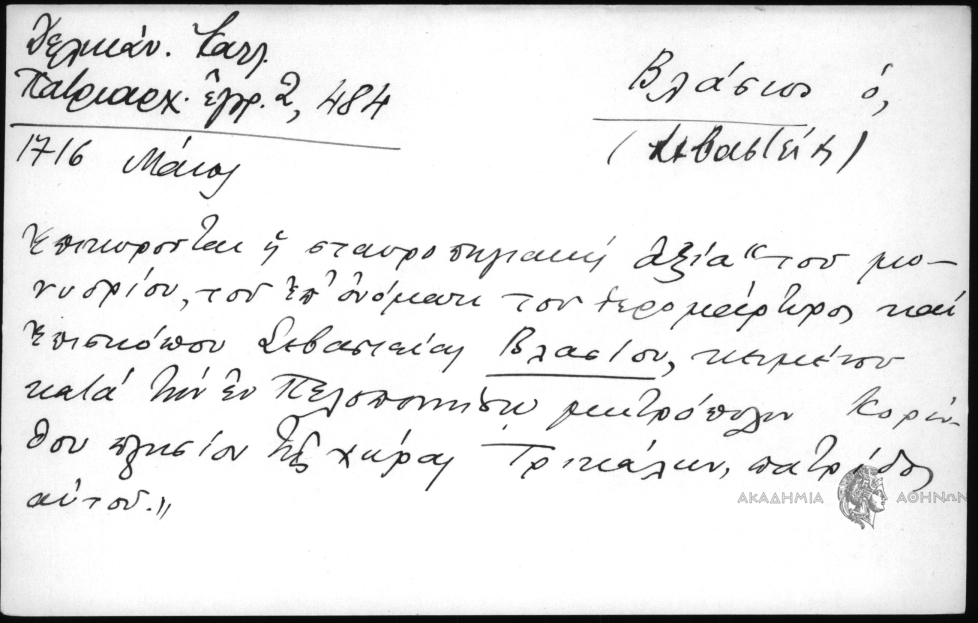 Δελικάν. Κατλ.
Πατριαρχ. ἔγγρ. 2, 484
1716 Μάιος
Βλάσιος ὁ,
(Σεβαστείας)
Ἐπικυροῦται ἡ σταυροπηγιακή ἀξία "τοῦ μο-
νυδρίου, τοῦ ἐπ' ὀνόματι τοῦ ἱερομάρτυρος καί
ἐπισκόπου Σεβαστείας Βλασίου, κειμένου
κατά τήν ἐν Πελοποννήσῳ μητρόπολιν Κορίν-
θου πλησίον τῆς χώρας Τρικάλων, πατρίδος
αὐτοῦ."
ΑΚΑΔΗΜΙΑ ΑΘΗΝΩΝ